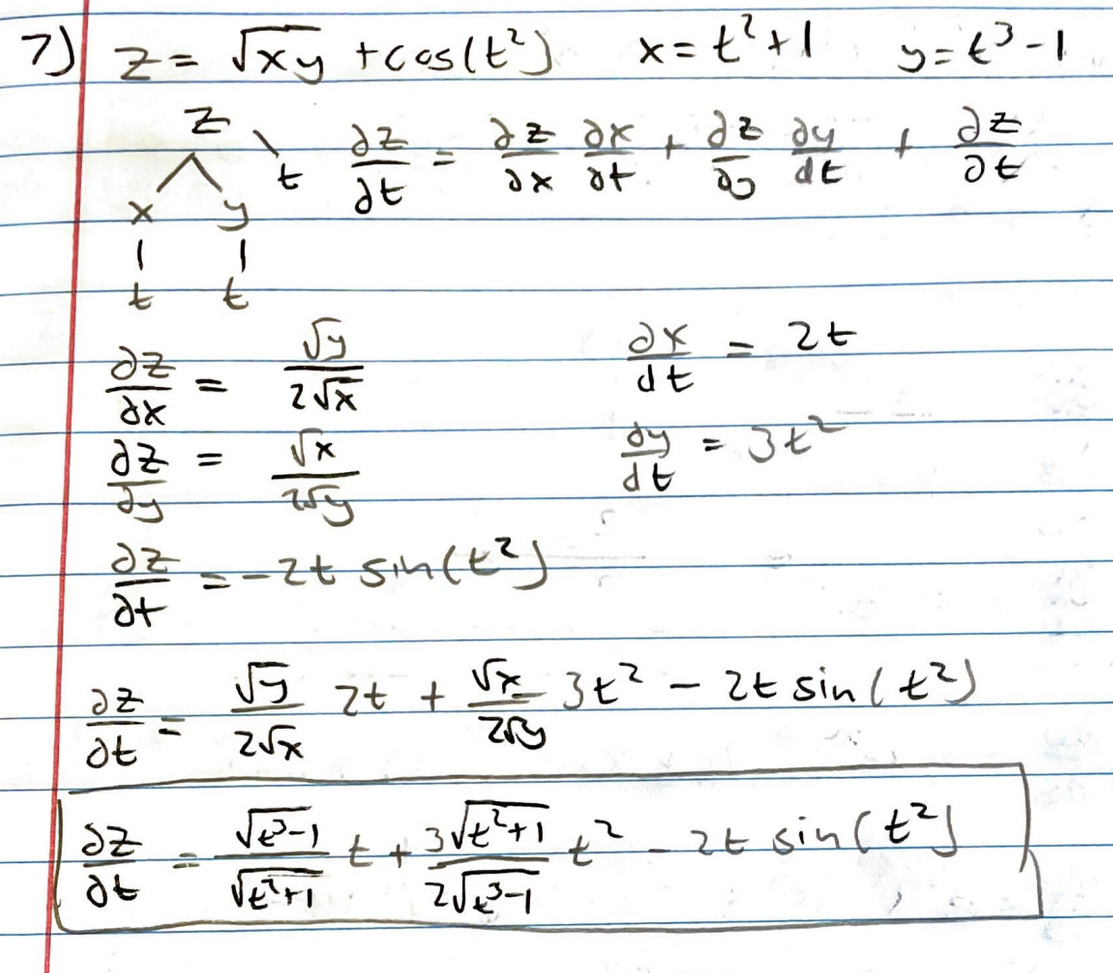 7) z = √xy + cos(t²) x = t² + 1 y = t³ - 1
z
t ∂z/∂t = ∂z/∂x ∂x/∂t + ∂z/∂y ∂y/dt + ∂z/∂t
x y
t t
∂z/∂x = √y/2√x ∂x/dt = 2t
∂z/∂y = √x/2√y ∂y/dt = 3t²
∂z/∂t = -2t sin(t²)
∂z/∂t = √y/2√x 2t + √x/2√y 3t² - 2t sin(t²)
∂z/∂t = √t³-1/√t²+1 t + 3√t²+1/2√t³-1 t² - 2t sin(t²)